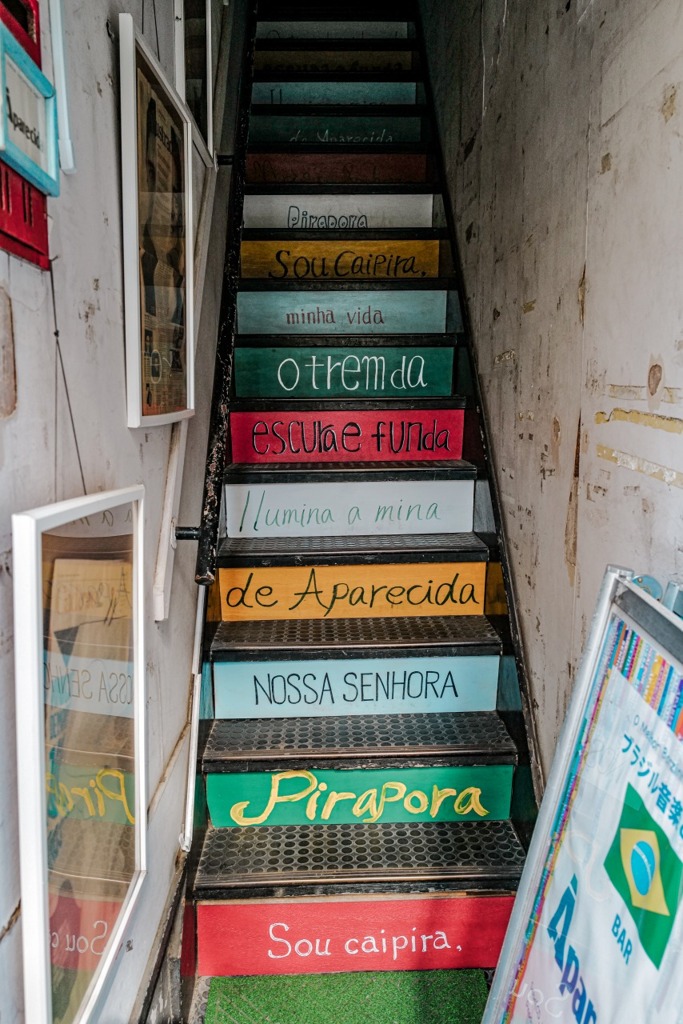 Sou caipira,
Pirapora
NOSSA SENHORA
de Aparecida
Ilumina a mina
escura e funda
o trem da
minha vida
Sou Caipira,
Pirapora
de Aparecida
Aparecid
ブラジル音楽
BAR
Apar